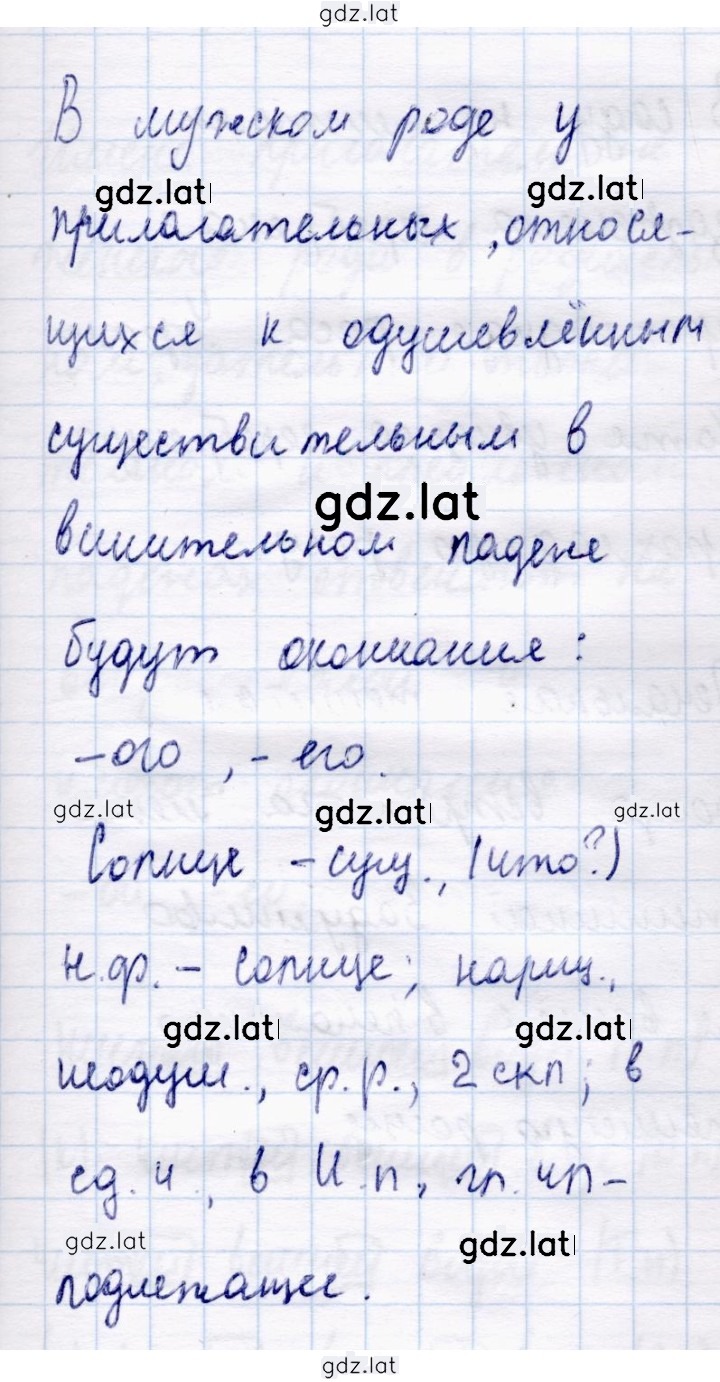 gdz.lat
В мужском роде у
gdz.lat gdz.lat
прилагательных, относя-
щихся к одушевлённым
существительным в
gdz.lat
винительном падеже
будут окончания:
-ого, -его.
gdz.lat gdz.lat gdz.lat
Солнце - сущ., (что?)
н.ф. - солнце; нариц.,
gdz.lat gdz.lat
неодуш., ср.р., 2 скл; в
ед.ч., в И.п., гл. чл-
gdz.lat gdz.lat
подлежащее.
gdz.lat